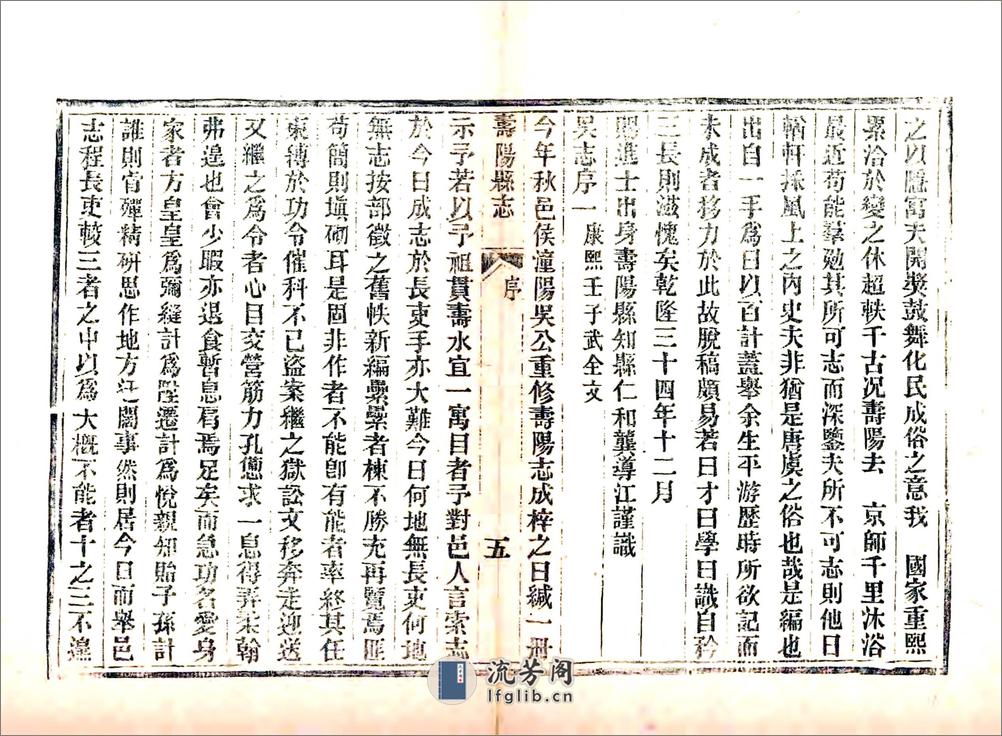 之以隱寓夫開獎鼓舞化民成俗之意我　國家重熙
累洽於變之休超軼千古况壽陽去　京師千里沐浴
最近苟能羣勉其所可志而深鑒夫所不可志則他日
輶軒採風上之內史夫非猶是唐虞之俗也哉是編也
出自一手爲日以百計蓋舉余生平游歷時所欲記而
未成者移力於此故脫稿頗易若曰才曰學曰識自矜
三長則滋愧矣乾隆三十四年十二月
賜進士出身壽陽縣知縣仁和龔導江謹識
吳志序一康熙壬子武全文
今年秋邑侯潼陽吳公重修壽陽志成梓之日緘一册
壽陽縣志　序　五
示予若以予祖貫壽水宜一寓目者予對邑人言索志
於今日成志於長吏手亦大難今日何地無長吏何地
無志按部徵之舊帙新編纍纍者棟不勝充再覽焉匪
苟簡則塡砌耳是固非作者不能卽有能者率終其任
束縛於功令催科不已盜案繼之獄訟文移奔走迎送
又繼之爲令者心目交營筋力孔憊求一息得弄柔翰
弗遑也會少暇亦退食暫息焉足矣而急功名愛身
家者方皇皇爲彌縫計爲陞遷計爲悅親知貽子孫計
誰則肯殫精研思作地方迂闊事然則居今日而舉邑
志程長吏較三者之中以爲大概不能者十之三不遑
流芳阁
lfglib.cn